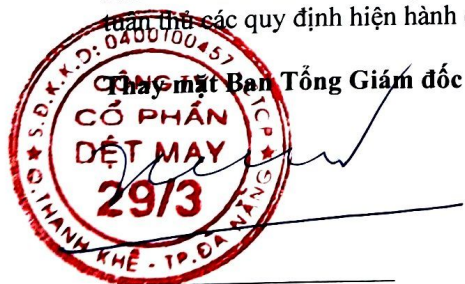 tuân thủ các quy định hiện hành
Thay mặt Ban Tổng Giám đốc
S.Đ.K.K.D: 0400100457
CÔNG TY
CỔ PHẦN
DỆT MAY
29/3
Q.THANH KHÊ - TP.ĐÀ NẴNG